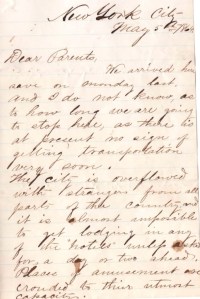 New York City
May 5th
Dear Parents,
We arrived here
save on monday last.
and I do not know as
to how long we are going
to stop here, as there is
at present no sign of
getting transportation
very soon.
The city is overflowed
with strangers from all
parts of the country and
it is almost impossible
to get lodging in any
of the hotels unless
for a day or two ahead.
Places of amusement are
crouded to thier utmost
capacity.